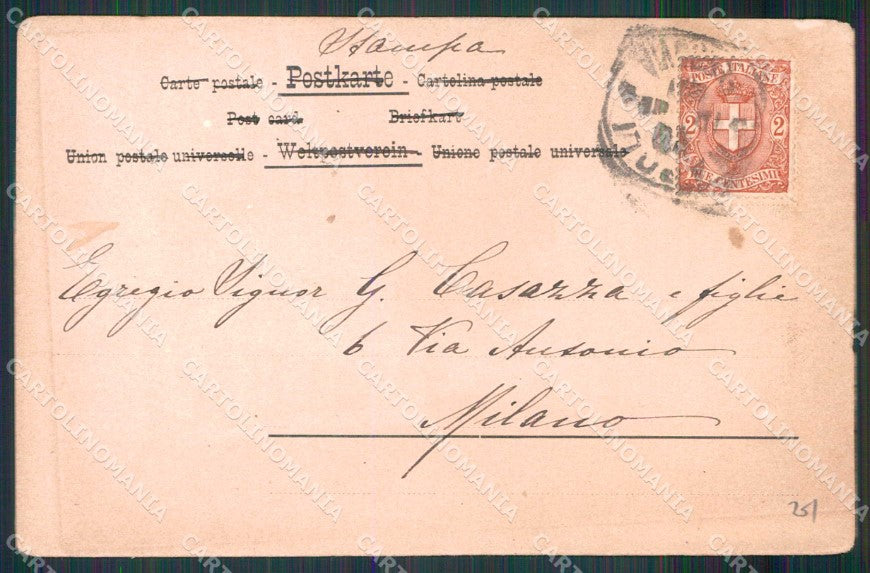 Stampa
Carte postale - Postkarte - Cartolina postale
Post card. Briefkart
Union postale universelle - Weltpostverein - Unione postale universale
POSTE ITALIANE
2 2
DUE CENTESIMI
Egregio Signor G. Casazza e figlie
6 Via Ausonio
Milano
251
CARTOLINOMANIA